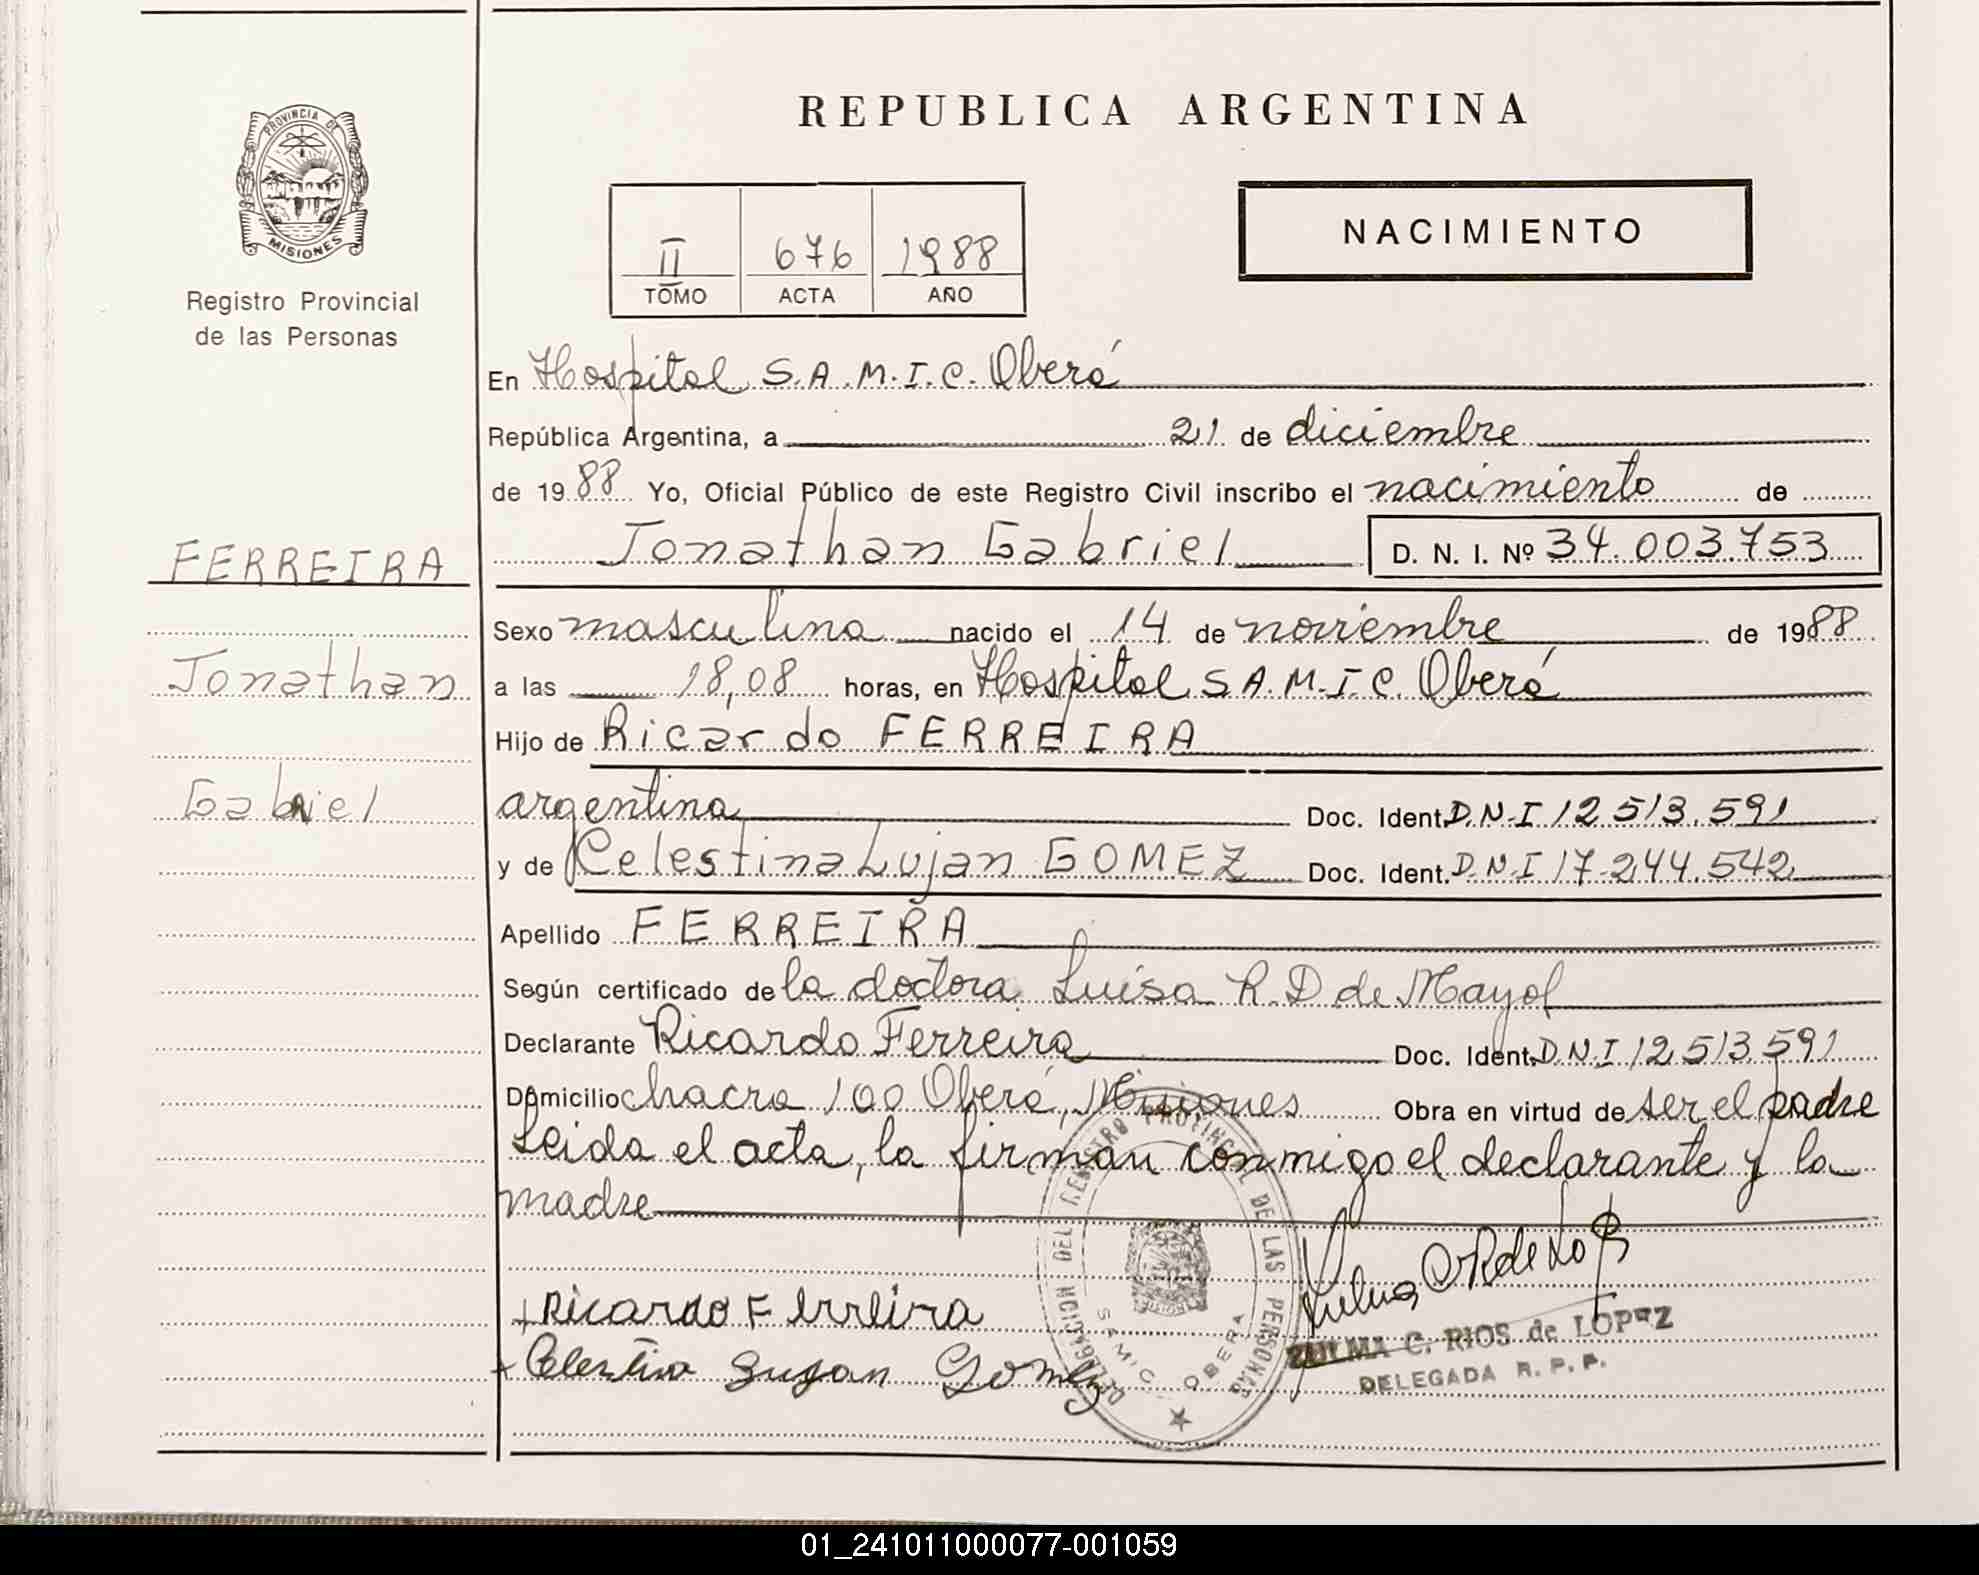 PROVINCIA DE
MISIONES
Registro Provincial
de las Personas
FERREIRA
Jonathan
Gabriel
REPUBLICA ARGENTINA
II 676 1988
TOMO ACTA AÑO
NACIMIENTO
En Hospital S.A.M.I.C. Oberá
República Argentina, a 21 de diciembre
de 1988 Yo, Oficial Público de este Registro Civil inscribo el nacimiento de
Jonathan Gabriel D. N. I. Nº 34.003.753
Sexo masculino nacido el 14 de noviembre de 1988
a las 18,08 horas, en Hospital S.A.M.I.C. Oberá
Hijo de Ricardo FERREIRA
argentina Doc. Ident. D.N.I 12.513.591
y de Celestina Lujan GOMEZ Doc. Ident. D.N.I 17.244.542
Apellido FERREIRA
Según certificado de la doctora Luisa R. D de Mayol
Declarante Ricardo Ferreira Doc. Ident. D.N.I 12.513.591
Domicilio chacra 100 Oberá, Misiones Obra en virtud de ser el padre
Leida el acta, la firman conmigo el declarante y la
madre
+ Ricardo Ferreira
+ Celestina Lujan Gomez
DELEGACION DEL REGISTRO PROVINCIAL DE LAS PERSONAS
SAMIC - OBERA
ZULMA C. RIOS de LOPEZ
DELEGADA R. P. P.
01_241011000077-001059